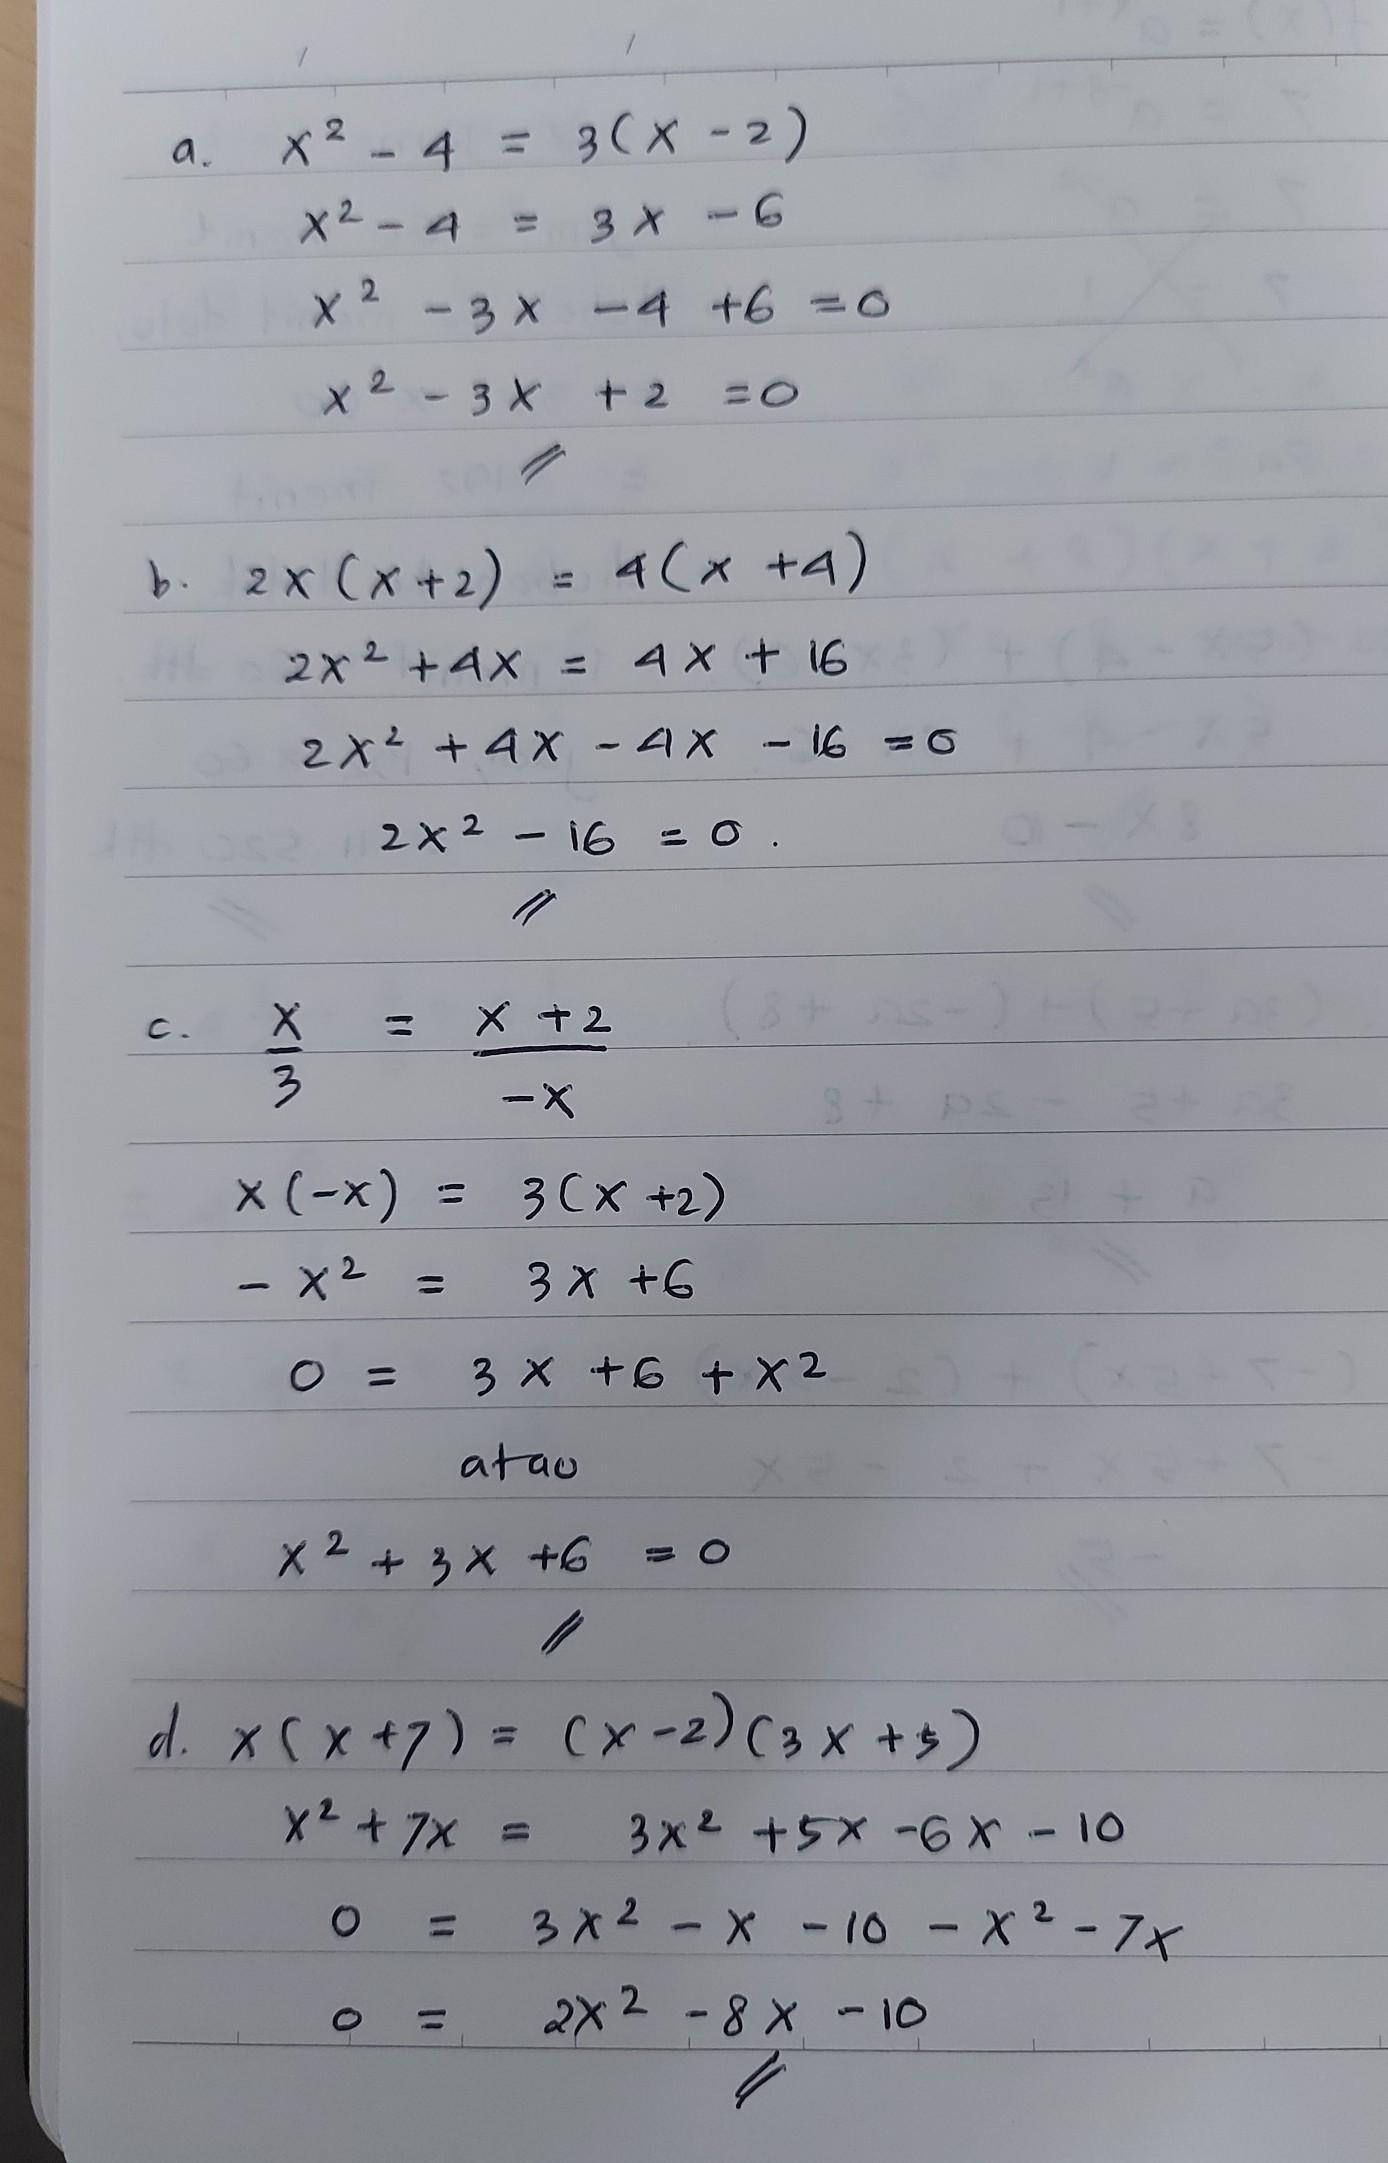 a. x² - 4 = 3(x - 2)
x² - 4 = 3x - 6
x² - 3x - 4 + 6 = 0
x² - 3x + 2 = 0
//
b. 2x(x+2) = 4(x+4)
2x² + 4x = 4x + 16
2x² + 4x - 4x - 16 = 0
2x² - 16 = 0.
//
c. x/3 = (x+2)/-x
x(-x) = 3(x+2)
- x² = 3x + 6
0 = 3x + 6 + x2
atau
x² + 3x + 6 = 0
//
d. x(x+7) = (x-2)(3x+5)
x² + 7x = 3x² + 5x - 6x - 10
0 = 3x² - x - 10 - x² - 7x
0 = 2x² - 8x - 10
//